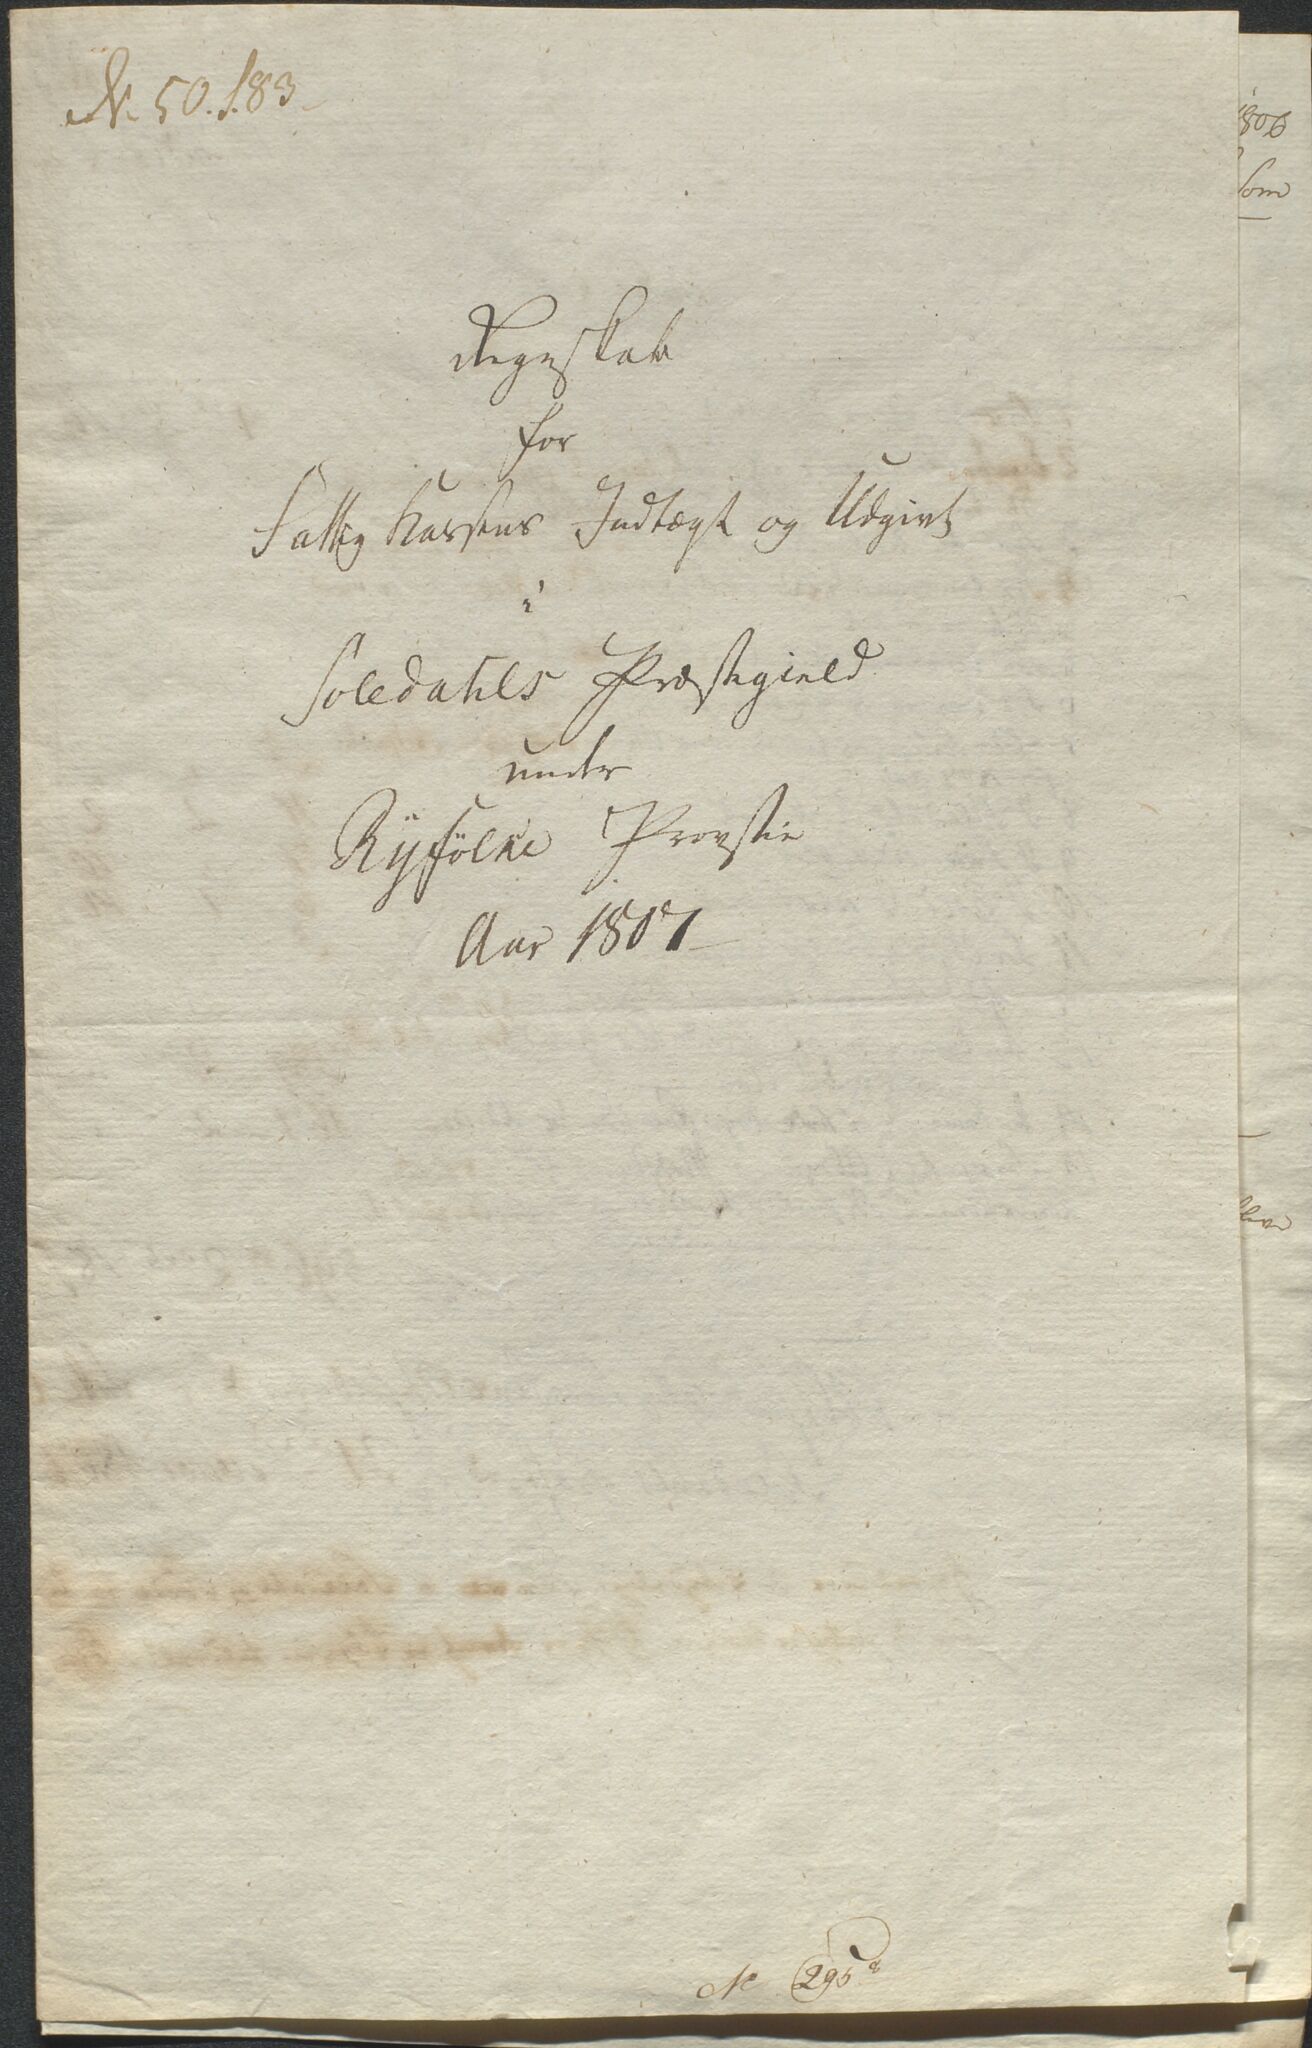 N. 50. f. 83
1806
Som
Regnskab
for
Fattig Kassens Indtægt og Udgivt
i
Soledahls Præstegield
under
Ryfölke Provstie
Aar 1807
N 295